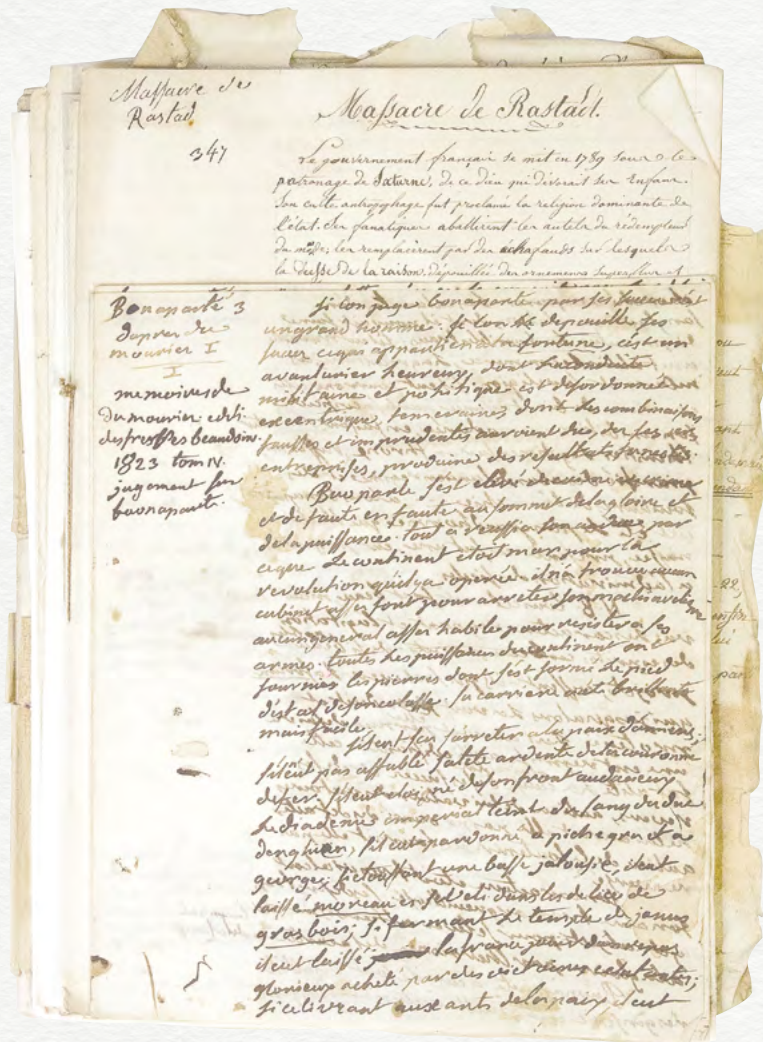 Massacre de
Rastad
347
Massacre de Rastadt.
Le gouvernement français se mit en 1789 sous le
patronage de Saturne, de ce dieu qui dévorait ses Enfans.
Son culte antropophage fut proclamé la religion dominante de
l'état. Ses fanatiques abattirent les autels du rédempteur
du monde; les remplacèrent par des échafauds sur lesquels
la Déesse de la raison, dépouillée des ornemens superflus et
Bonaparté 3
dapres du
mourier I
I
memoires de
Dumourier edit.
des freres beaudoin.
1823 tom IV.
jugement sur
buonaparte.
si lon juge bonaparte par ses succes cest
un grand homme. si lon le depouille ses
succes ce qui appartient a la fortune, cest un
avanturier heureux, dont la conduite
militaire et politique est desordonnée
excentrique, temeraire, dont les combinaisons
fausses et imprudentes auroient du, des ses
entreprises, produire des resultats funestes.
Buoparte sest elevé
et de faute en faute au sommet de la gloire et
de la puissance. tout a reussi a son audace par
ceque le continent etoit mur pour la
revolution quil y a operée. il na trouvé aucun
cabinet assez fort pour arreter son machiavelisme
aucun general assez habile pour resister a ses
armes. toutes les puissances du continent ont
fournies les pierres dont sest formé le pied
destal de son colosse. sa carriere a eté brillante
mais facile.
sil eut su sarreter a la paix damiens;
sil n'eut pas affublé sa tete ardente de la couronne
de fer. sil eut eloigné de son front audacieux
le diademe imperial teint du sang du duc
denghien, sil eut pardonné a pichegru et a
george; si etouffant une basse jalousie, il eut
laissé moreau dans les delices de
gros bois; si fermant le temple de janus
il eut laissé la france jouir dun repos
glorieux acheté par des victoires eclatantes;
si se livrant aux arts de la paix il eut